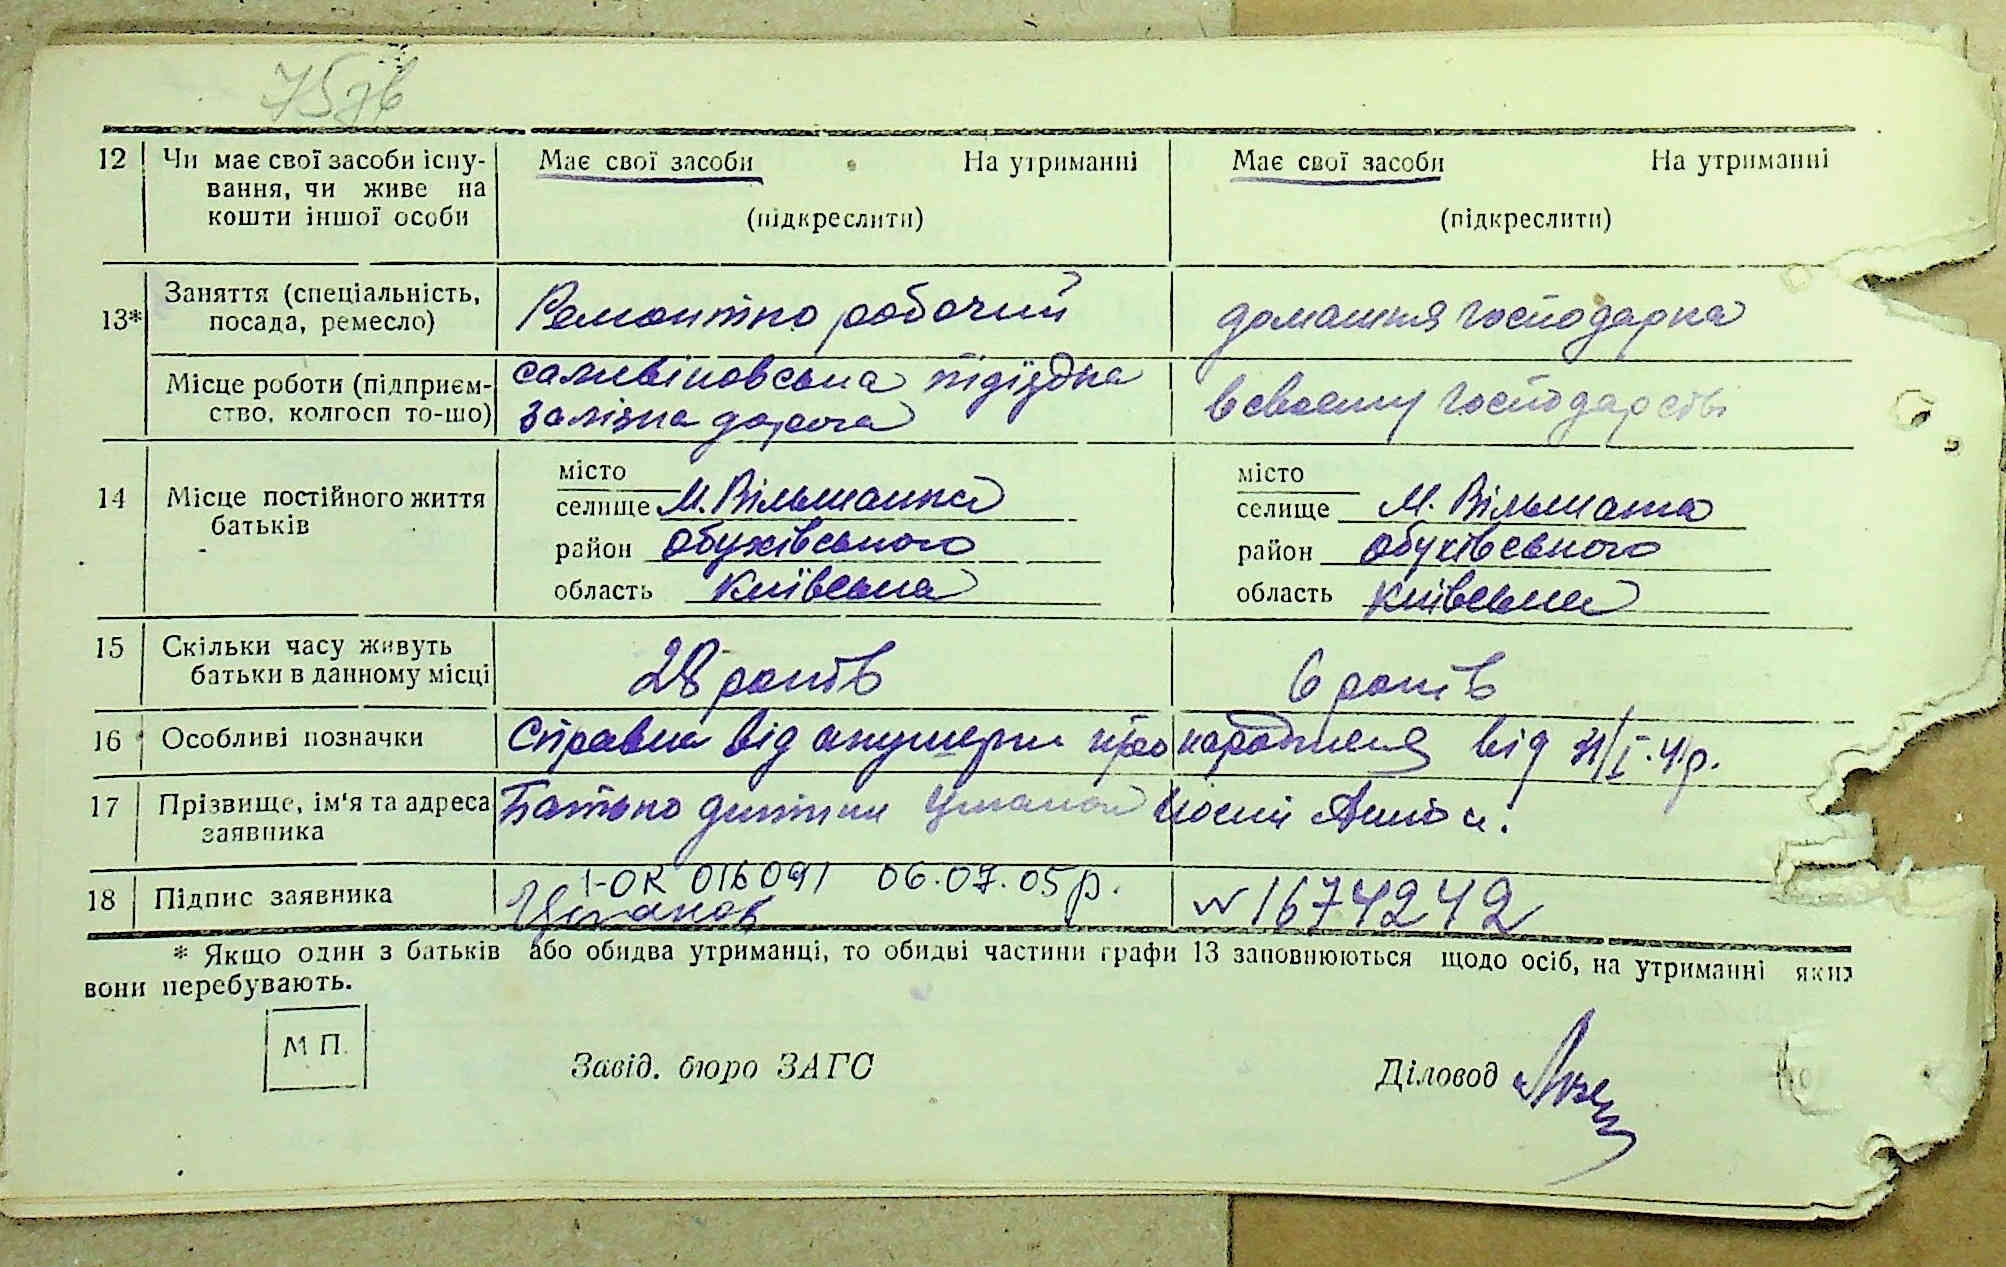 75зв
12 Чи має свої засоби існу- Має свої засоби На утриманні Має свої засоби На утриманні
вання, чи живе на
кошти іншої особи (підкреслити) (підкреслити)
13* Заняття (спеціальність, посада, ремесло) Ремонтно робочий домашня господарка
Місце роботи (підприєм- підїздна в своєму господарстві
ство, колгосп то-що) залізна дорога
14 Місце постійного життя батьків
місто місто
селище М. Вільшанка селище М. Вільшанка
район Обухівського район Обухівського
область Київська область Київська
15 Скільки часу живуть 28 років 6 років
батьки в данному місці
16 Особливі позначки Справка від акушерки про народження від
17 Прізвище, ім'я та адреса Батько дитини
заявника
1-ОК 016091 06.07.05р. N 1674242
18 Підпис заявника
* Якщо один з батьків або обидва утриманці, то обидві частини графи 13 заповнюються щодо осіб, на утриманні яких
вони перебувають.
М П.
Завід. бюро ЗАГС Діловод